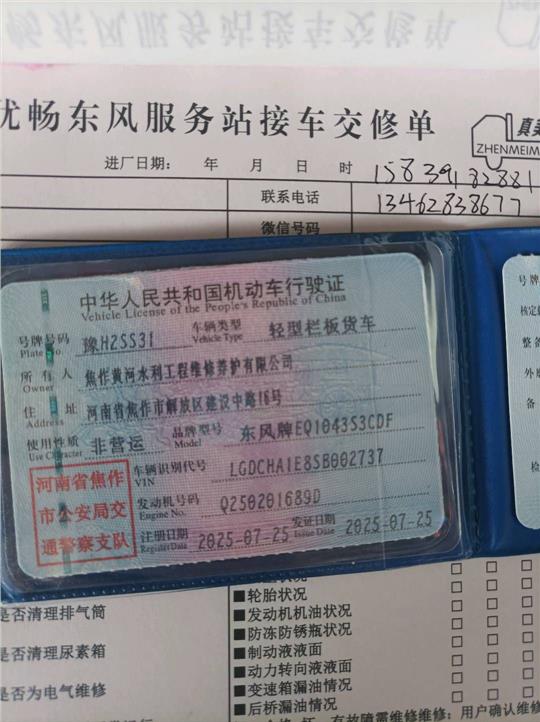 优畅东风服务站接车交修单
真美
ZHENMEIM
进厂日期： 年 月 日 时
15839182881
联系电话
13462838677
微信号码
中华人民共和国机动车行驶证
Vehicle License of the People's Republic of China
号牌号码 豫H2SS31 车辆类型 轻型栏板货车
Plate No. Vehicle Type
所有人 焦作黄河水利工程维修养护有限公司
Owner
住址 河南省焦作市解放区建设中路16号
Address
使用性质 非营运 品牌型号 东风牌EQ1043S3CDF
Use Character Model
车辆识别代号 LGDCHA1E8SB002737
VIN
发动机号码 Q250201689D
Engine No.
注册日期 2025-07-25 发证日期 2025-07-25
Register Date Issue Date
河南省焦作
市公安局交
通警察支队
号牌
核定
整备
外廓
备
检
■轮胎状况
是否清理排气筒
■发动机机油状况
■防冻防锈瓶状况
是否清理尿素箱
■制动液液面
■动力转向液液面
是否为电气维修
■变速箱漏油情况
■后桥漏油情况